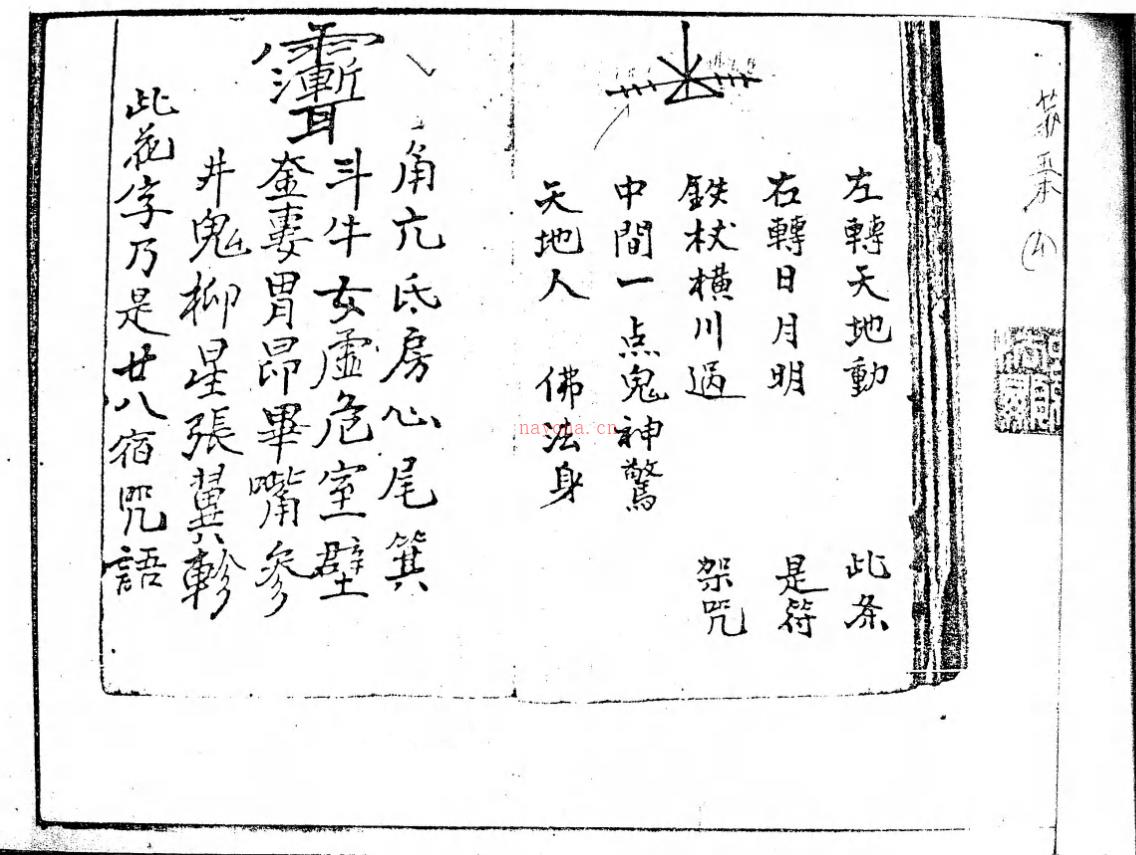 左轉天地動
右轉日月明
鉄杖横川過
中間一点鬼神驚
天地人 佛法身
此条
是符
架咒
角亢氐房心尾箕
斗牛女虛危室壁
奎婁胃昴畢嘴參
井鬼柳星張翼軫
此花字乃是廿八宿咒語
nayona.cn